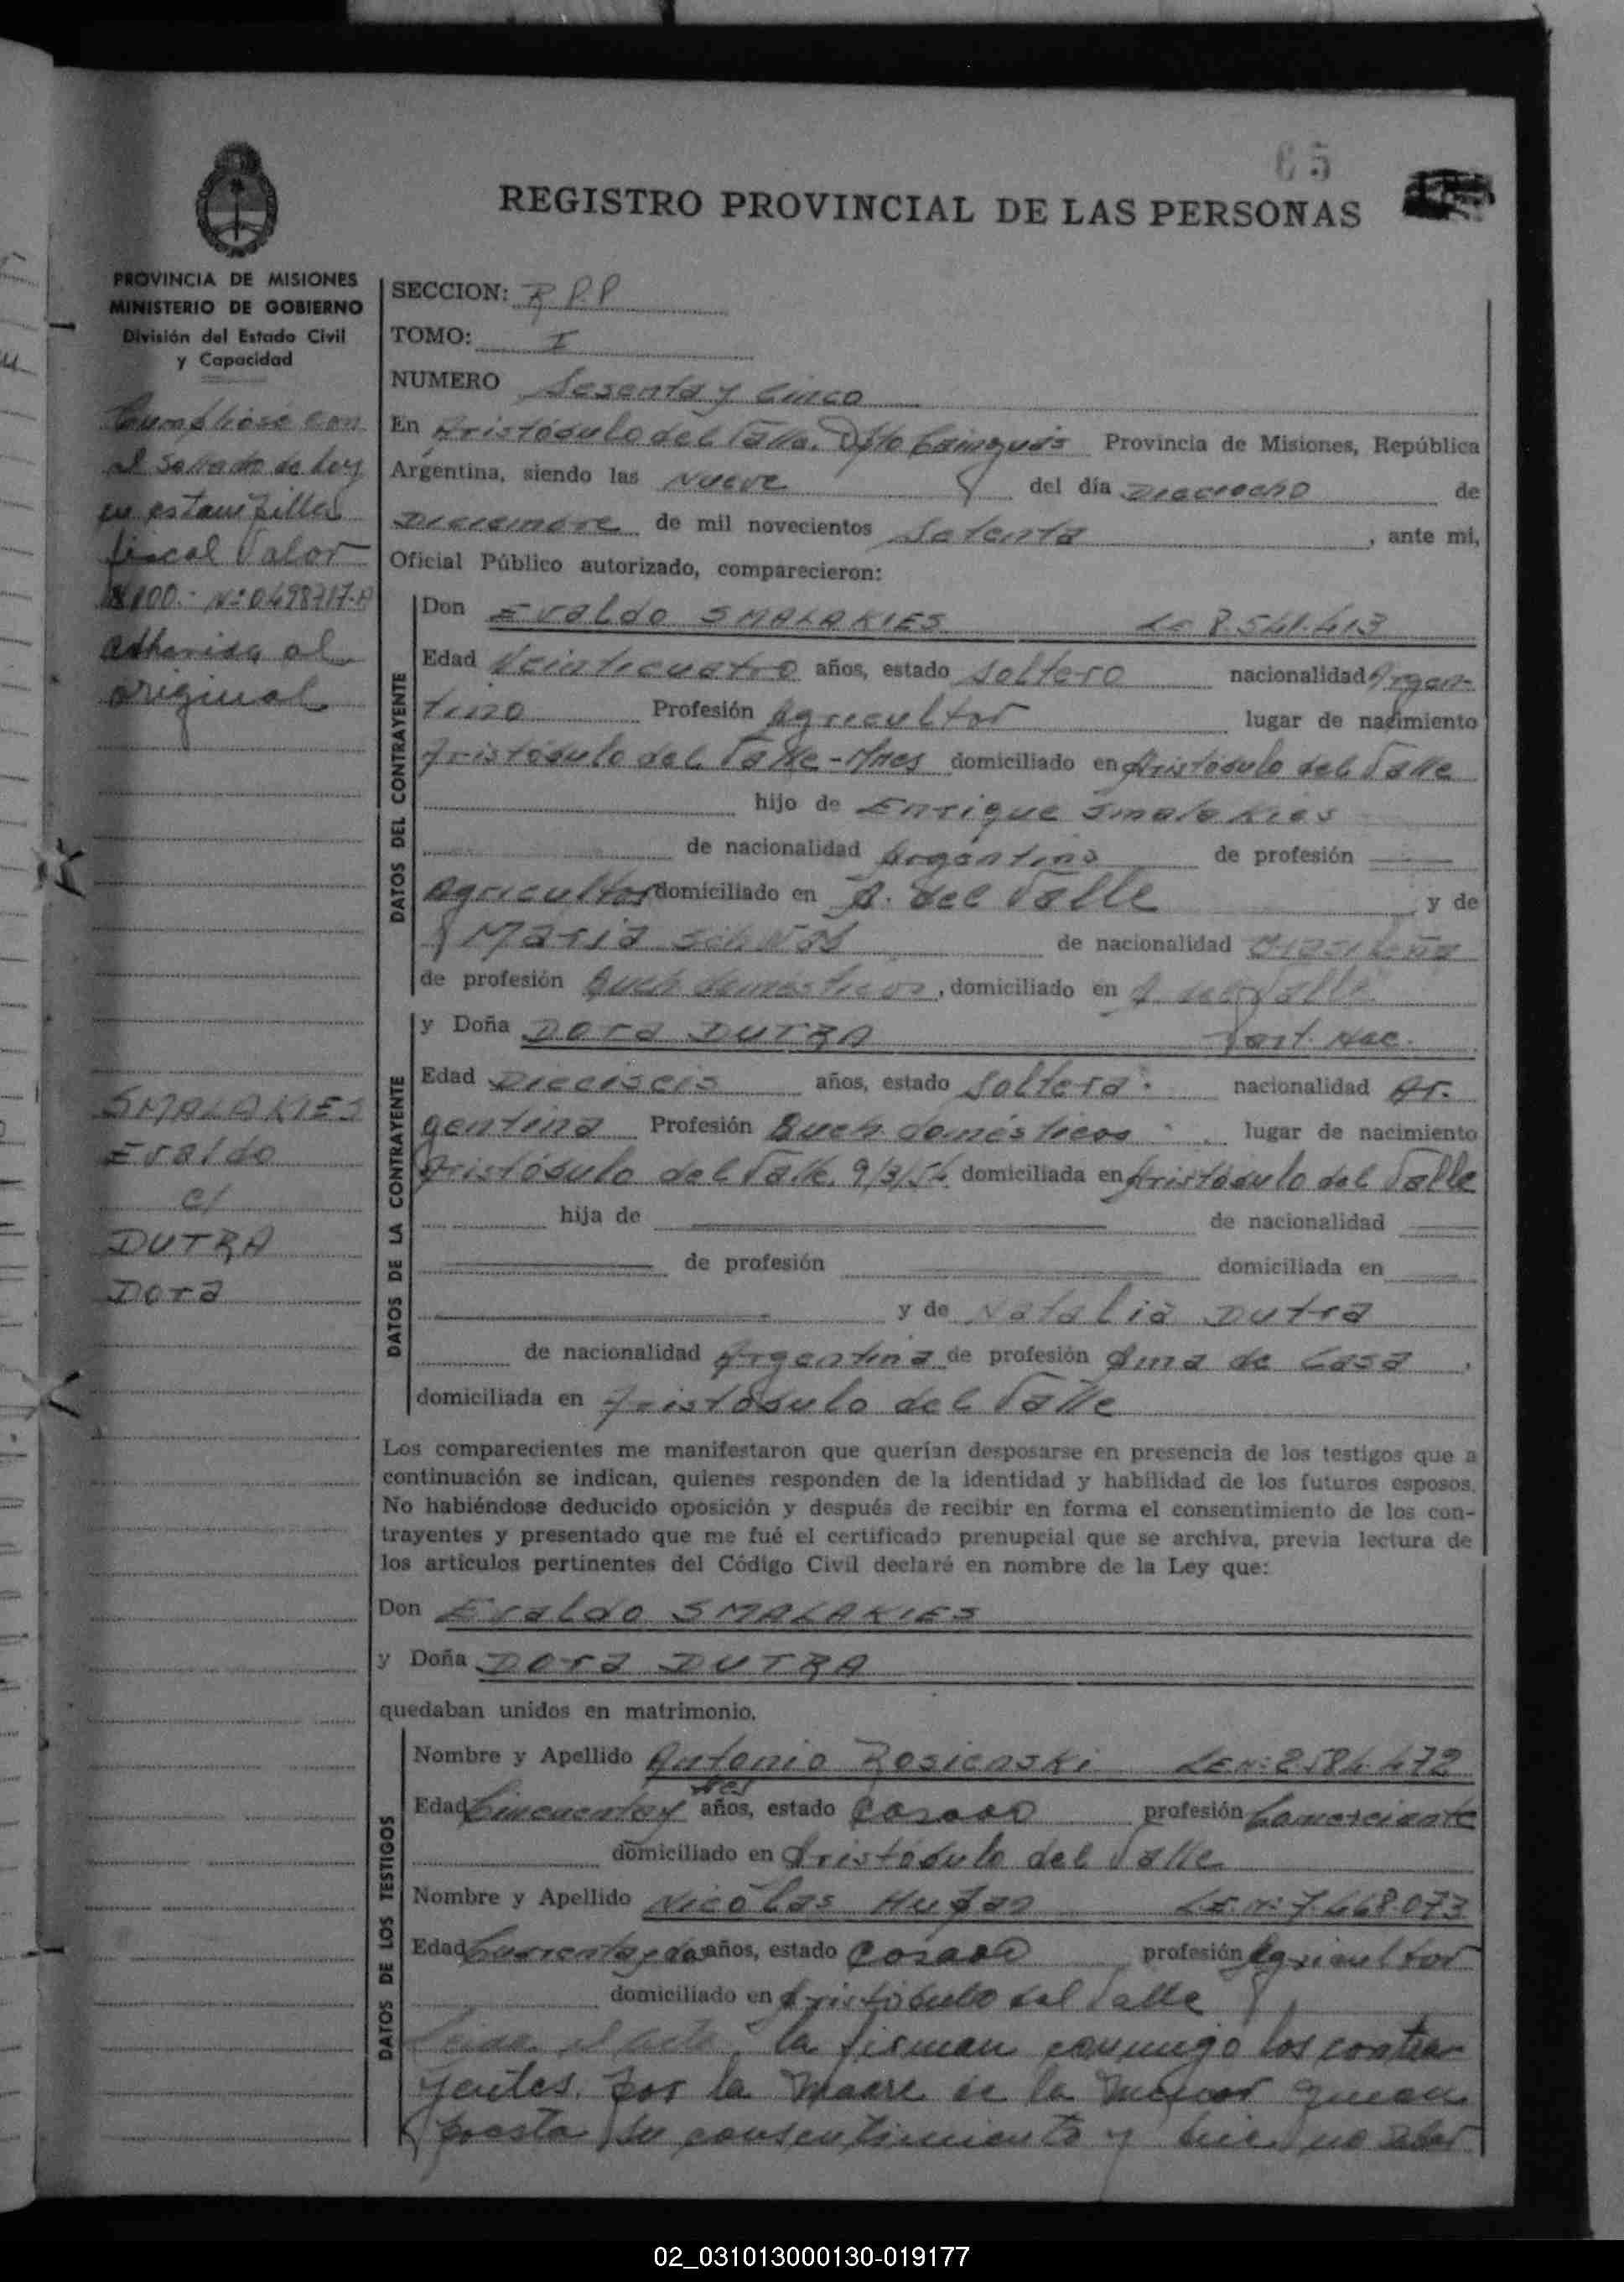 65
REGISTRO PROVINCIAL DE LAS PERSONAS
PROVINCIA DE MISIONES
MINISTERIO DE GOBIERNO
División del Estado Civil
y Capacidad
Cumplióse con
el sellado de ley
en estampillas
fiscal valor
$100.- Nº 0498717-A
adherida al
original
SMALAKIES
Evaldo
c/
DUTRA
Dora
SECCION: R P.P
TOMO: I
NUMERO Sesenta y cinco
En Aristóbulo del Valle. Dpto Cainguás Provincia de Misiones, República
Argentina, siendo las Nueve del día Dieciocho de
Diciembre de mil novecientos Setenta, ante mi,
Oficial Público autorizado, comparecieron:
DATOS DEL CONTRAYENTE
Don Evaldo SMALAKIES LE 8.541.413
Edad Veinticuatro años, estado soltero nacionalidad Argen-
tino Profesión Agricultor lugar de nacimiento
Aristóbulo del Valle-Mnes domiciliado en Aristóbulo del Valle
hijo de Enrique Smalakies
de nacionalidad Argentino de profesión
Agricultor domiciliado en A. del Valle y de
Maria de nacionalidad Brasileña
de profesión Queh. domésticos, domiciliado en A. del Valle
DATOS DE LA CONTRAYENTE
y Doña Dora DUTRA Part. Nac.
Edad Dieciseis años, estado Soltera. nacionalidad Ar.
gentina Profesión Queh. domésticos lugar de nacimiento
Aristóbulo del Valle. 9/3/54 domiciliada en Aristóbulo del Valle
hija de de nacionalidad
de profesión domiciliada en
y de Natalia Dutra
de nacionalidad Argentina de profesión Ama de Casa,
domiciliada en Aristóbulo del Valle
Los comparecientes me manifestaron que querían desposarse en presencia de los testigos que a
continuación se indican, quienes responden de la identidad y habilidad de los futuros esposos.
No habiéndose deducido oposición y después de recibir en forma el consentimiento de los con-
trayentes y presentado que me fué el certificado prenupcial que se archiva, previa lectura de
los artículos pertinentes del Código Civil declaré en nombre de la Ley que:
Don Evaldo SMALAKIES
y Doña Dora DUTRA
quedaban unidos en matrimonio.
DATOS DE LOS TESTIGOS
Nombre y Apellido Antonio Rosicnski LE Nº 2584.472
Edad Cincuenta y tres años, estado Casado profesión Comerciante
domiciliado en Aristóbulo del Valle
Nombre y Apellido Nicolas LE. Nº 7.468.073
Edad Cuarenta y dos años, estado Casado profesión Agricultor
domiciliado en Aristóbulo del Valle
Leida el acta, la firman conmigo los contra-
yentes. por la Madre de la menor quien
presta su consentimiento y dice no saber
02_031013000130-019177